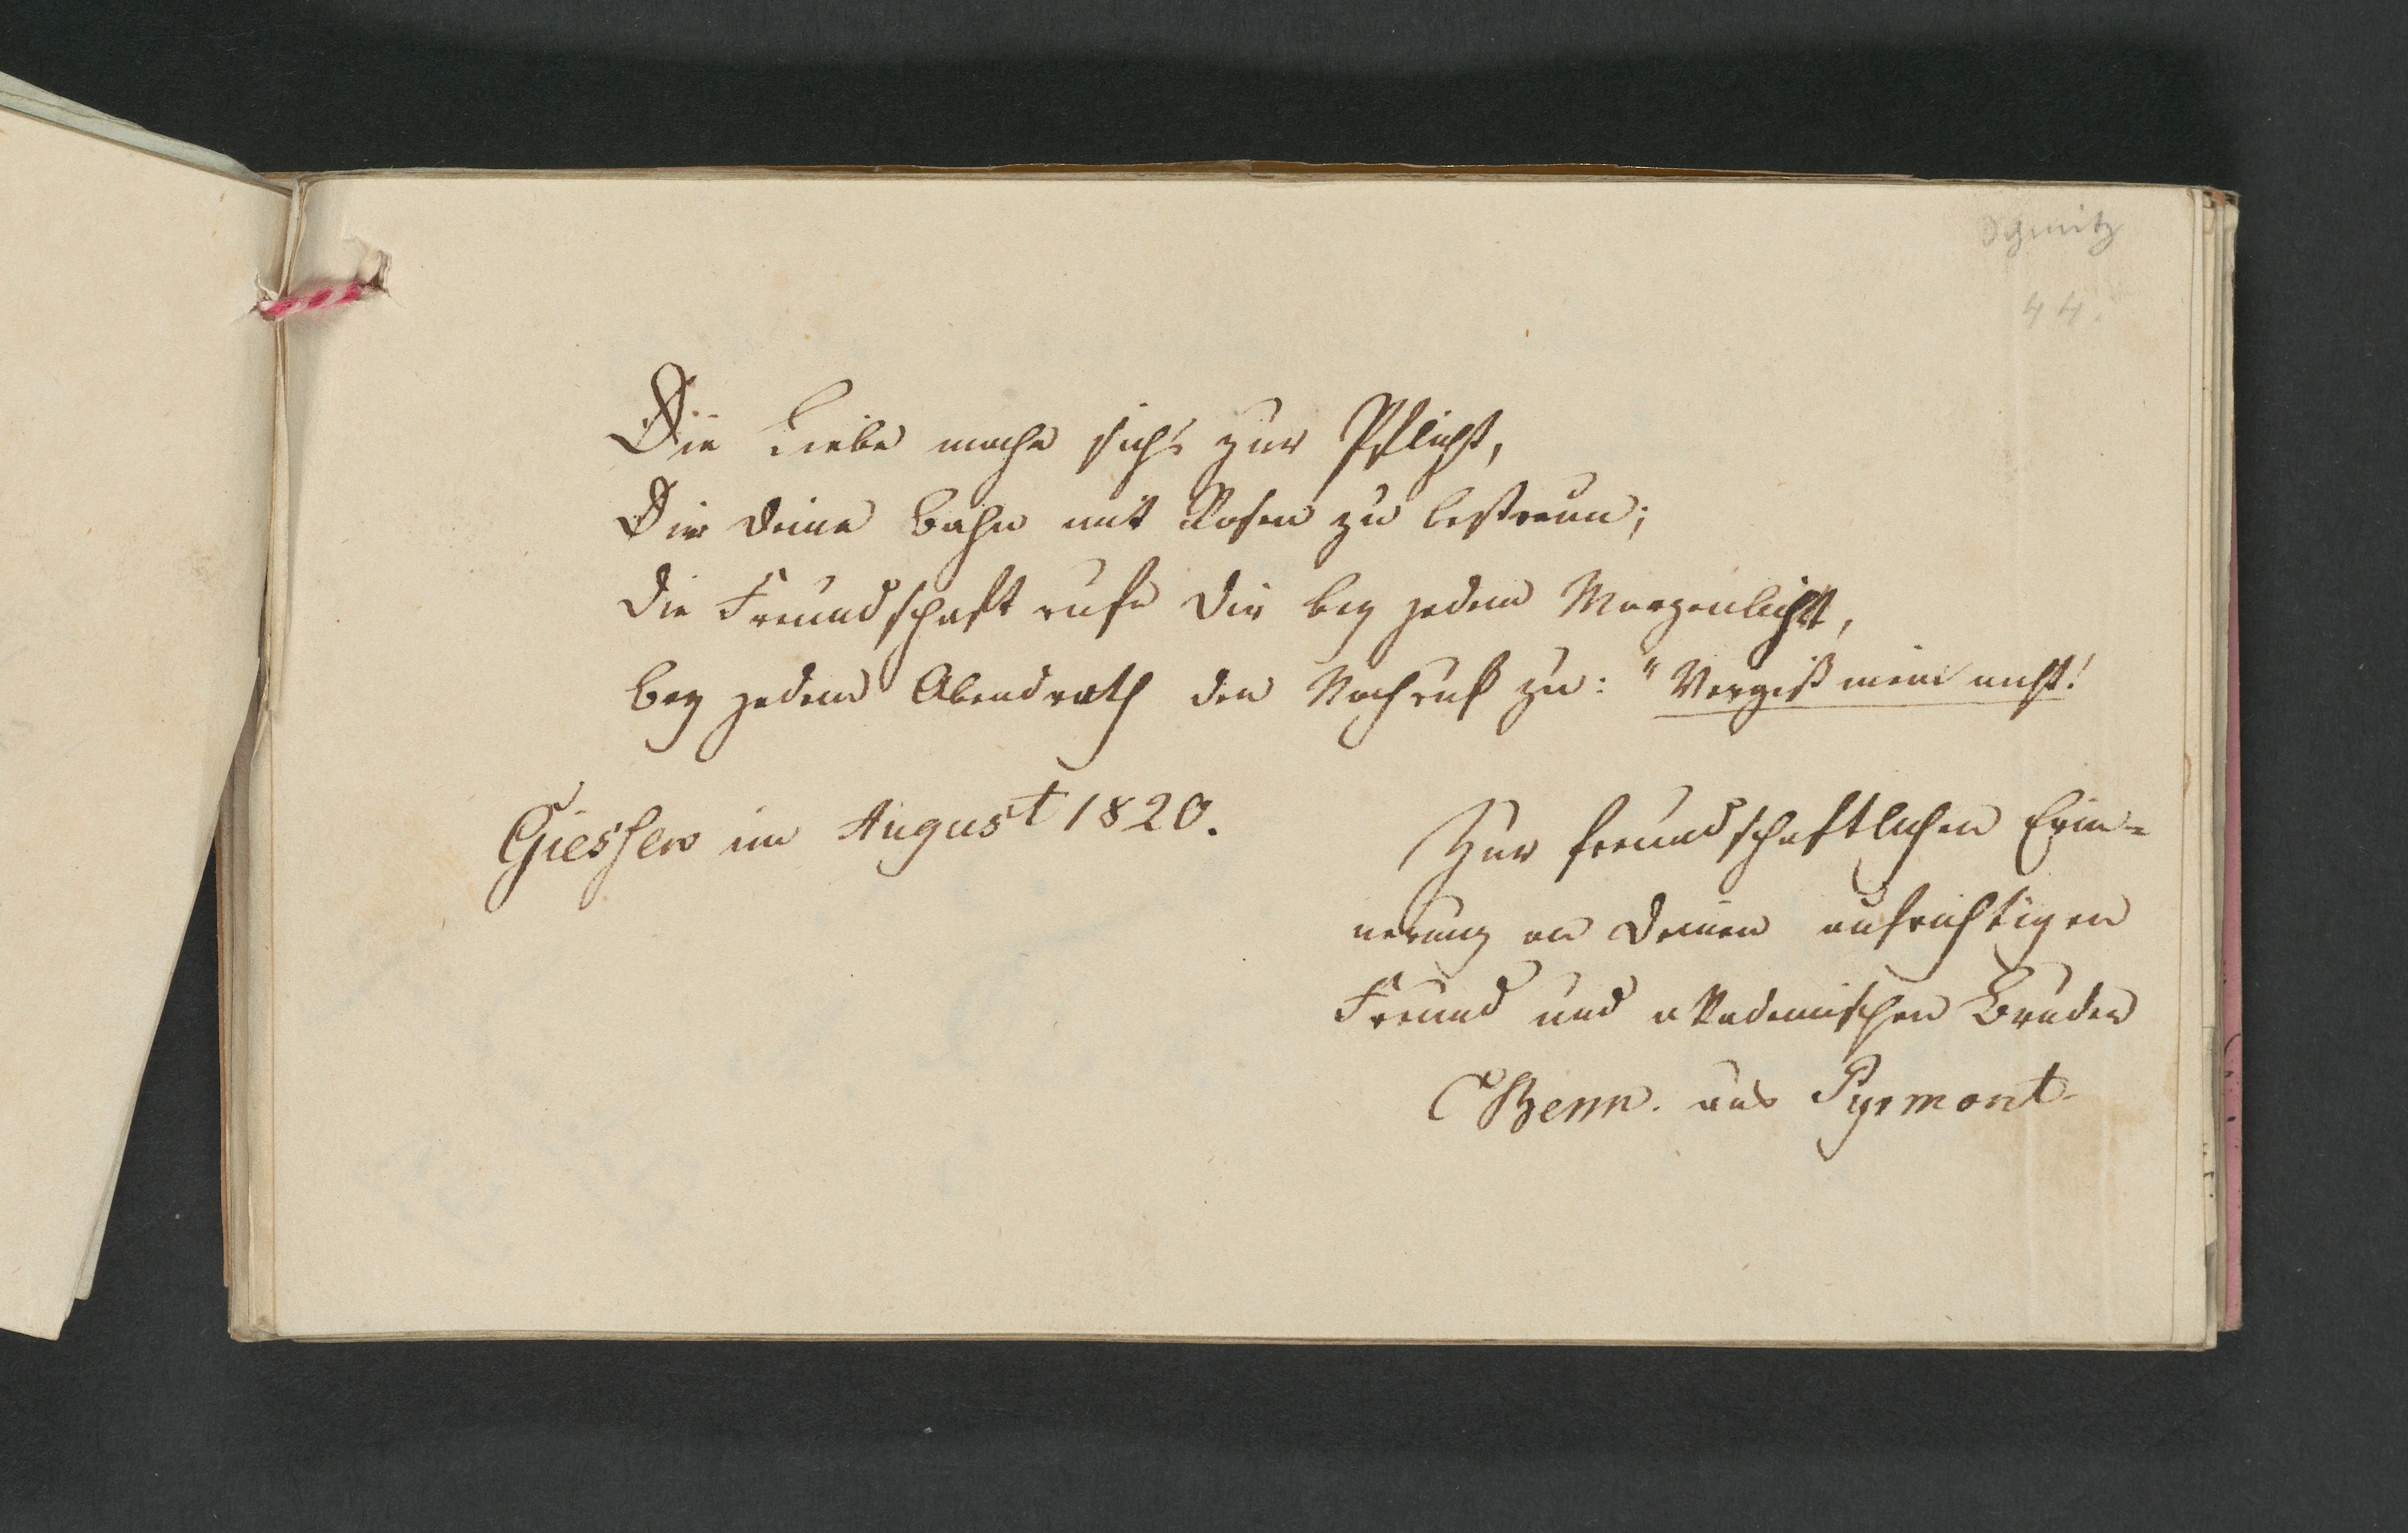 44.
Die Liebe mache sichs zur Pflicht,
Dir deine Bahn mit Rosen zu bestreun;
die Freundschaft rufe dir bey jedem Morgenlicht,
bey jedem Abendroth den Nachruf zu: "Vergiß mein nicht!
Giessen im August 1820.
Zur freundschaftlichen Erin=
nerung an deinen aufrichtigen
Freund und akademischen Bruder
aus Pyrmont